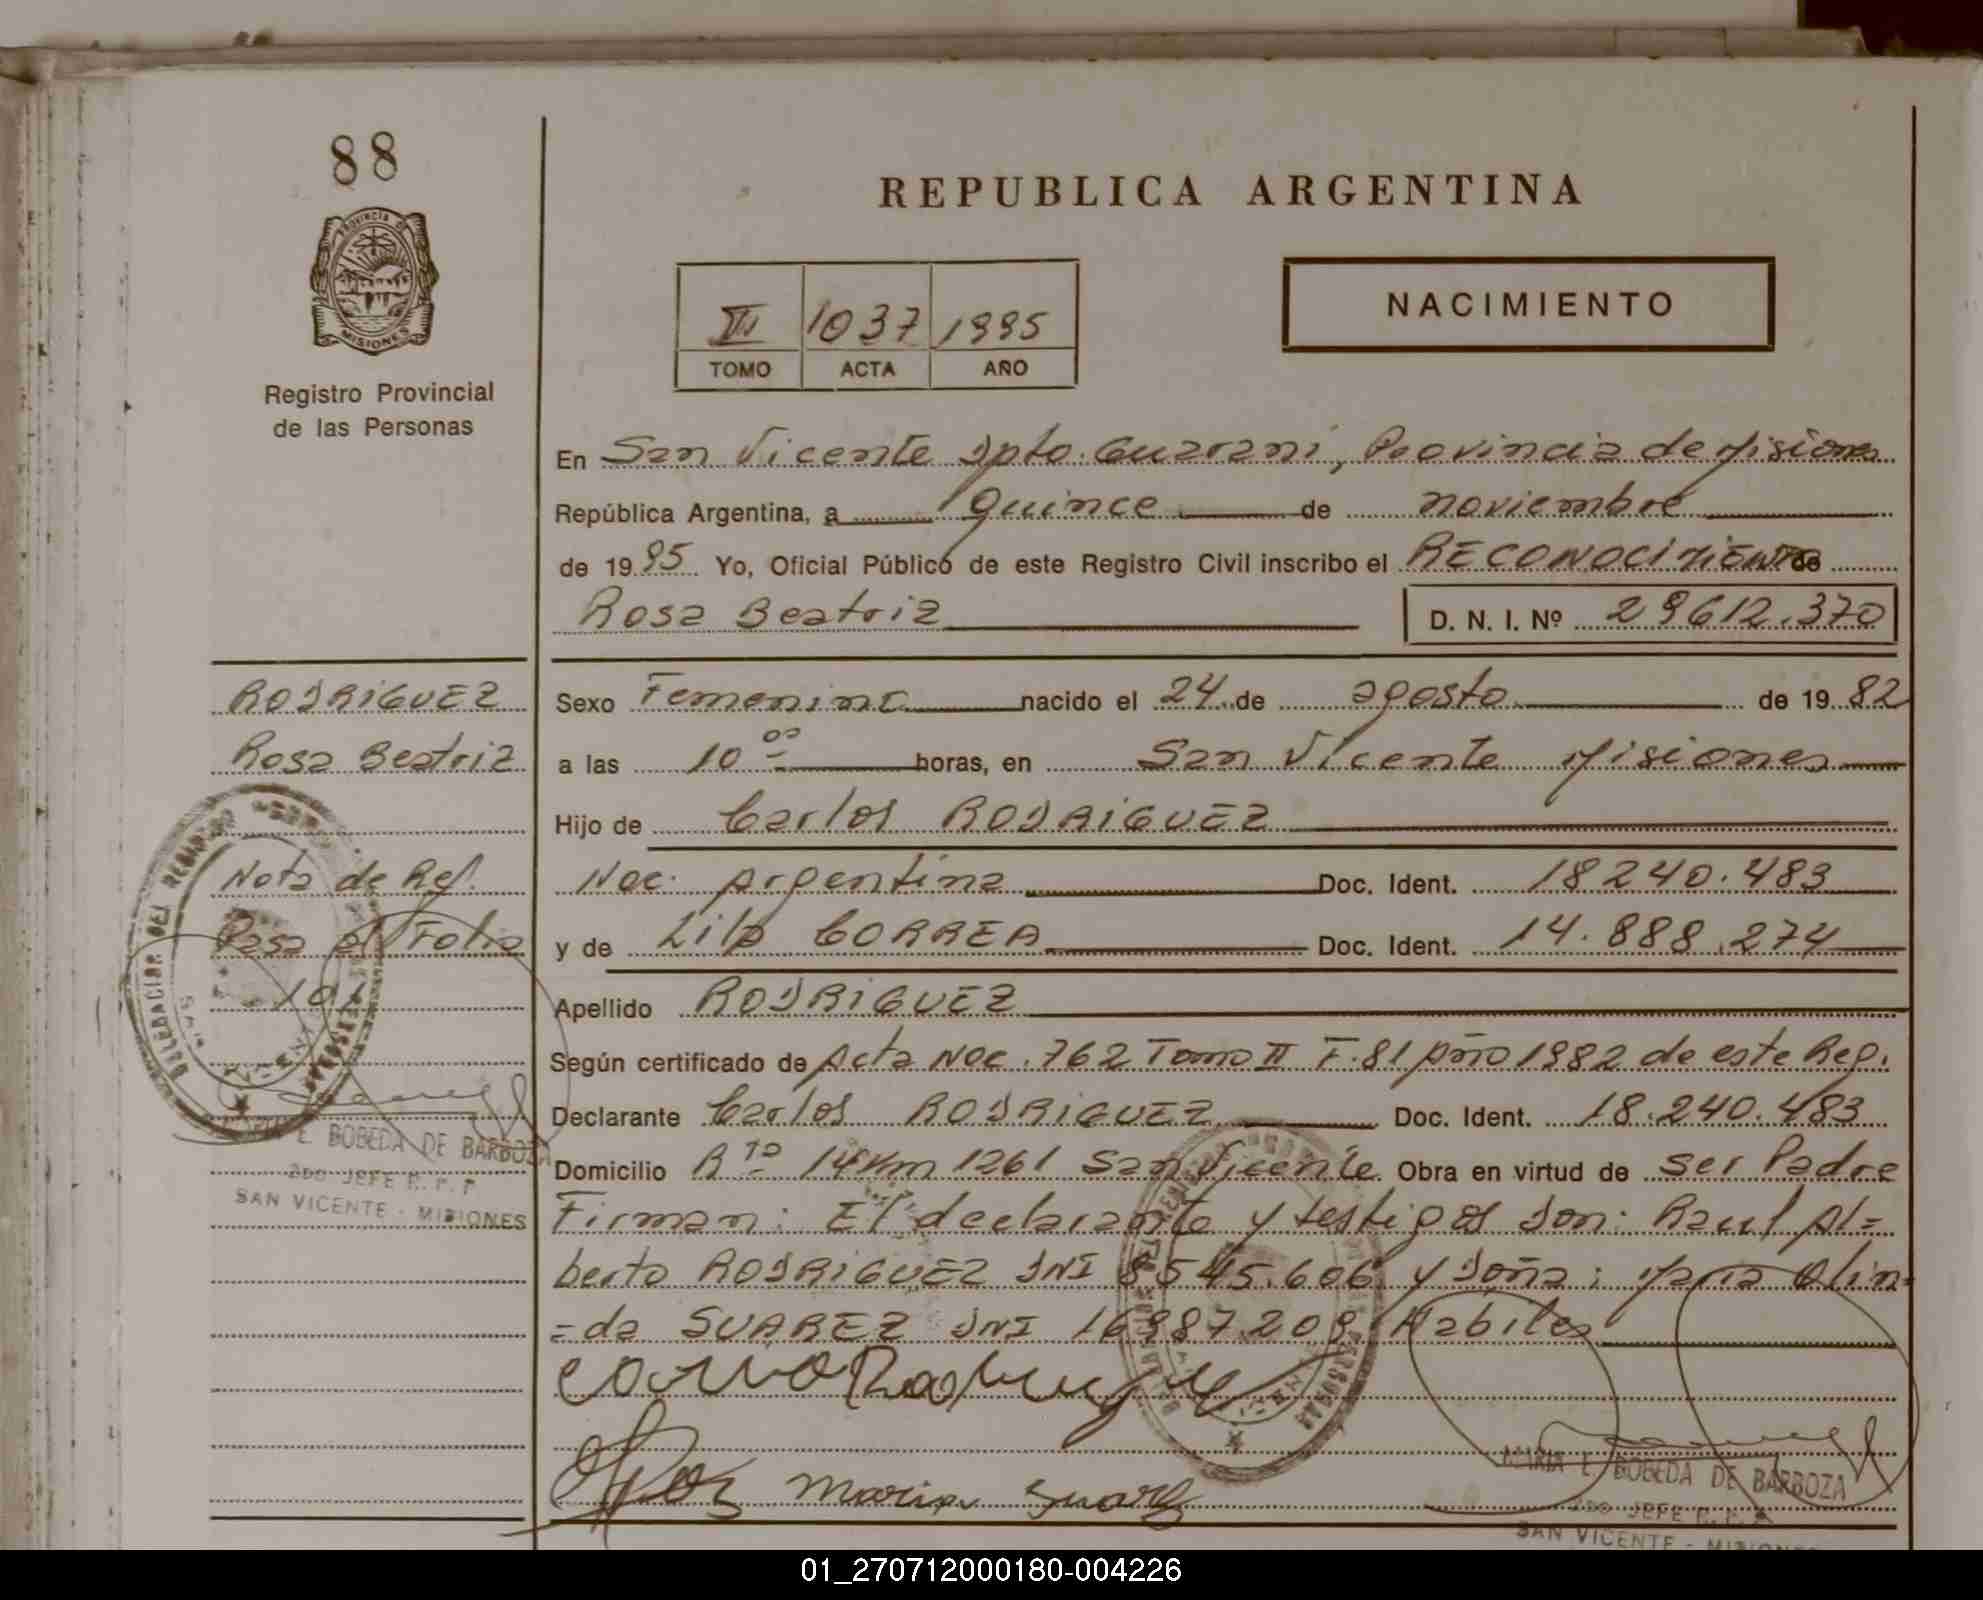 88
REPUBLICA ARGENTINA
PROVINCIA DE
MISIONES
Registro Provincial
de las Personas
1037 1995
TOMO ACTA AÑO
NACIMIENTO
En San Vicente Dpto. Guaraní, Provincia de Misiones
República Argentina, a quince de noviembre
de 1995 Yo, Oficial Público de este Registro Civil inscribo el RECONOCIMIENTO de
Rosa Beatriz D. N. I. Nº 29612.370
RODRIGUEZ
Rosa Beatriz
Nota de Ref.
Pasa al Folio
101
Sexo Femenino nacido el 24 de agosto de 1982
a las 10 00 horas, en San Vicente Misiones
Hijo de Carlos RODRIGUEZ
Nac. Argentina Doc. Ident. 18240.483
y de Lila CORREA Doc. Ident. 14.888.274
Apellido RODRIGUEZ
Según certificado de Acta Nac. 762 Tomo II F.81 Año 1982 de este Reg.
Declarante Carlos RODRIGUEZ Doc. Ident. 18.240.483
Domicilio 14 Km 1261 San Vicente Obra en virtud de ser Padre
Firman: El declarante y testigos Don: Raul Al=
berto RODRIGUEZ DNI 8545.606 y Doña: Maria Olin=
=da SUAREZ DNI 16987.209 Habiles
Maria Suarez
MARIA E. BOBEDA DE BARBOZA
2DO JEFE R. P. P
SAN VICENTE - MISIONES
MARIA E. BOBEDA DE BARBOZA
2DO JEFE R. P. P
SAN VICENTE - MISIONES
01_270712000180-004226